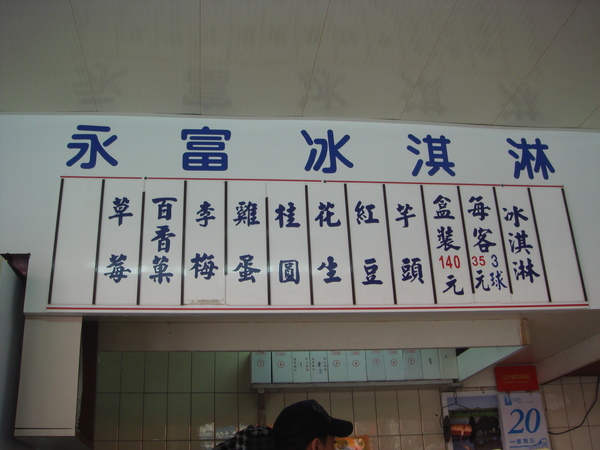 永富冰淇淋
冰淇淋
每客3球35元
盒裝140元
芋頭
紅豆
花生
桂圓
雞蛋
李梅
百香菓
草莓
20